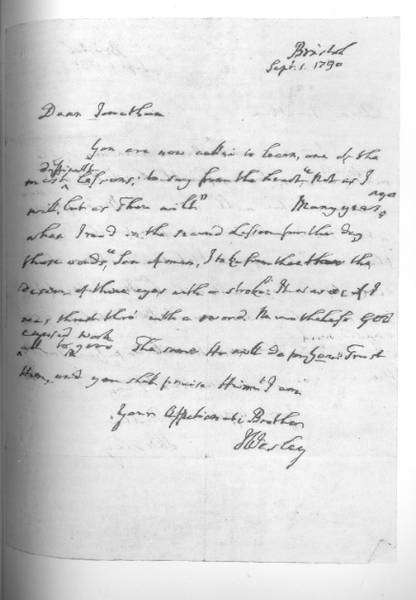 Bristol
Sept. 1. 1790
Dear Jonathan
You are now called to learn, one of the
difficult
most Lessons, to say from the heart, "Not as I
ago
will, but as Thou wilt" Many years,
when I read in the second Lesson for the day
those words, "Son of man, I take from thee the
desire of thine eyes with a stroke." It was as if I
was thrust thro' with a sword. Nevertheless GOD
caused work
all to good The same He will do for you: Trust
Him, and you shall praise Him! I am
Your Affectionate Brother
J Wesley